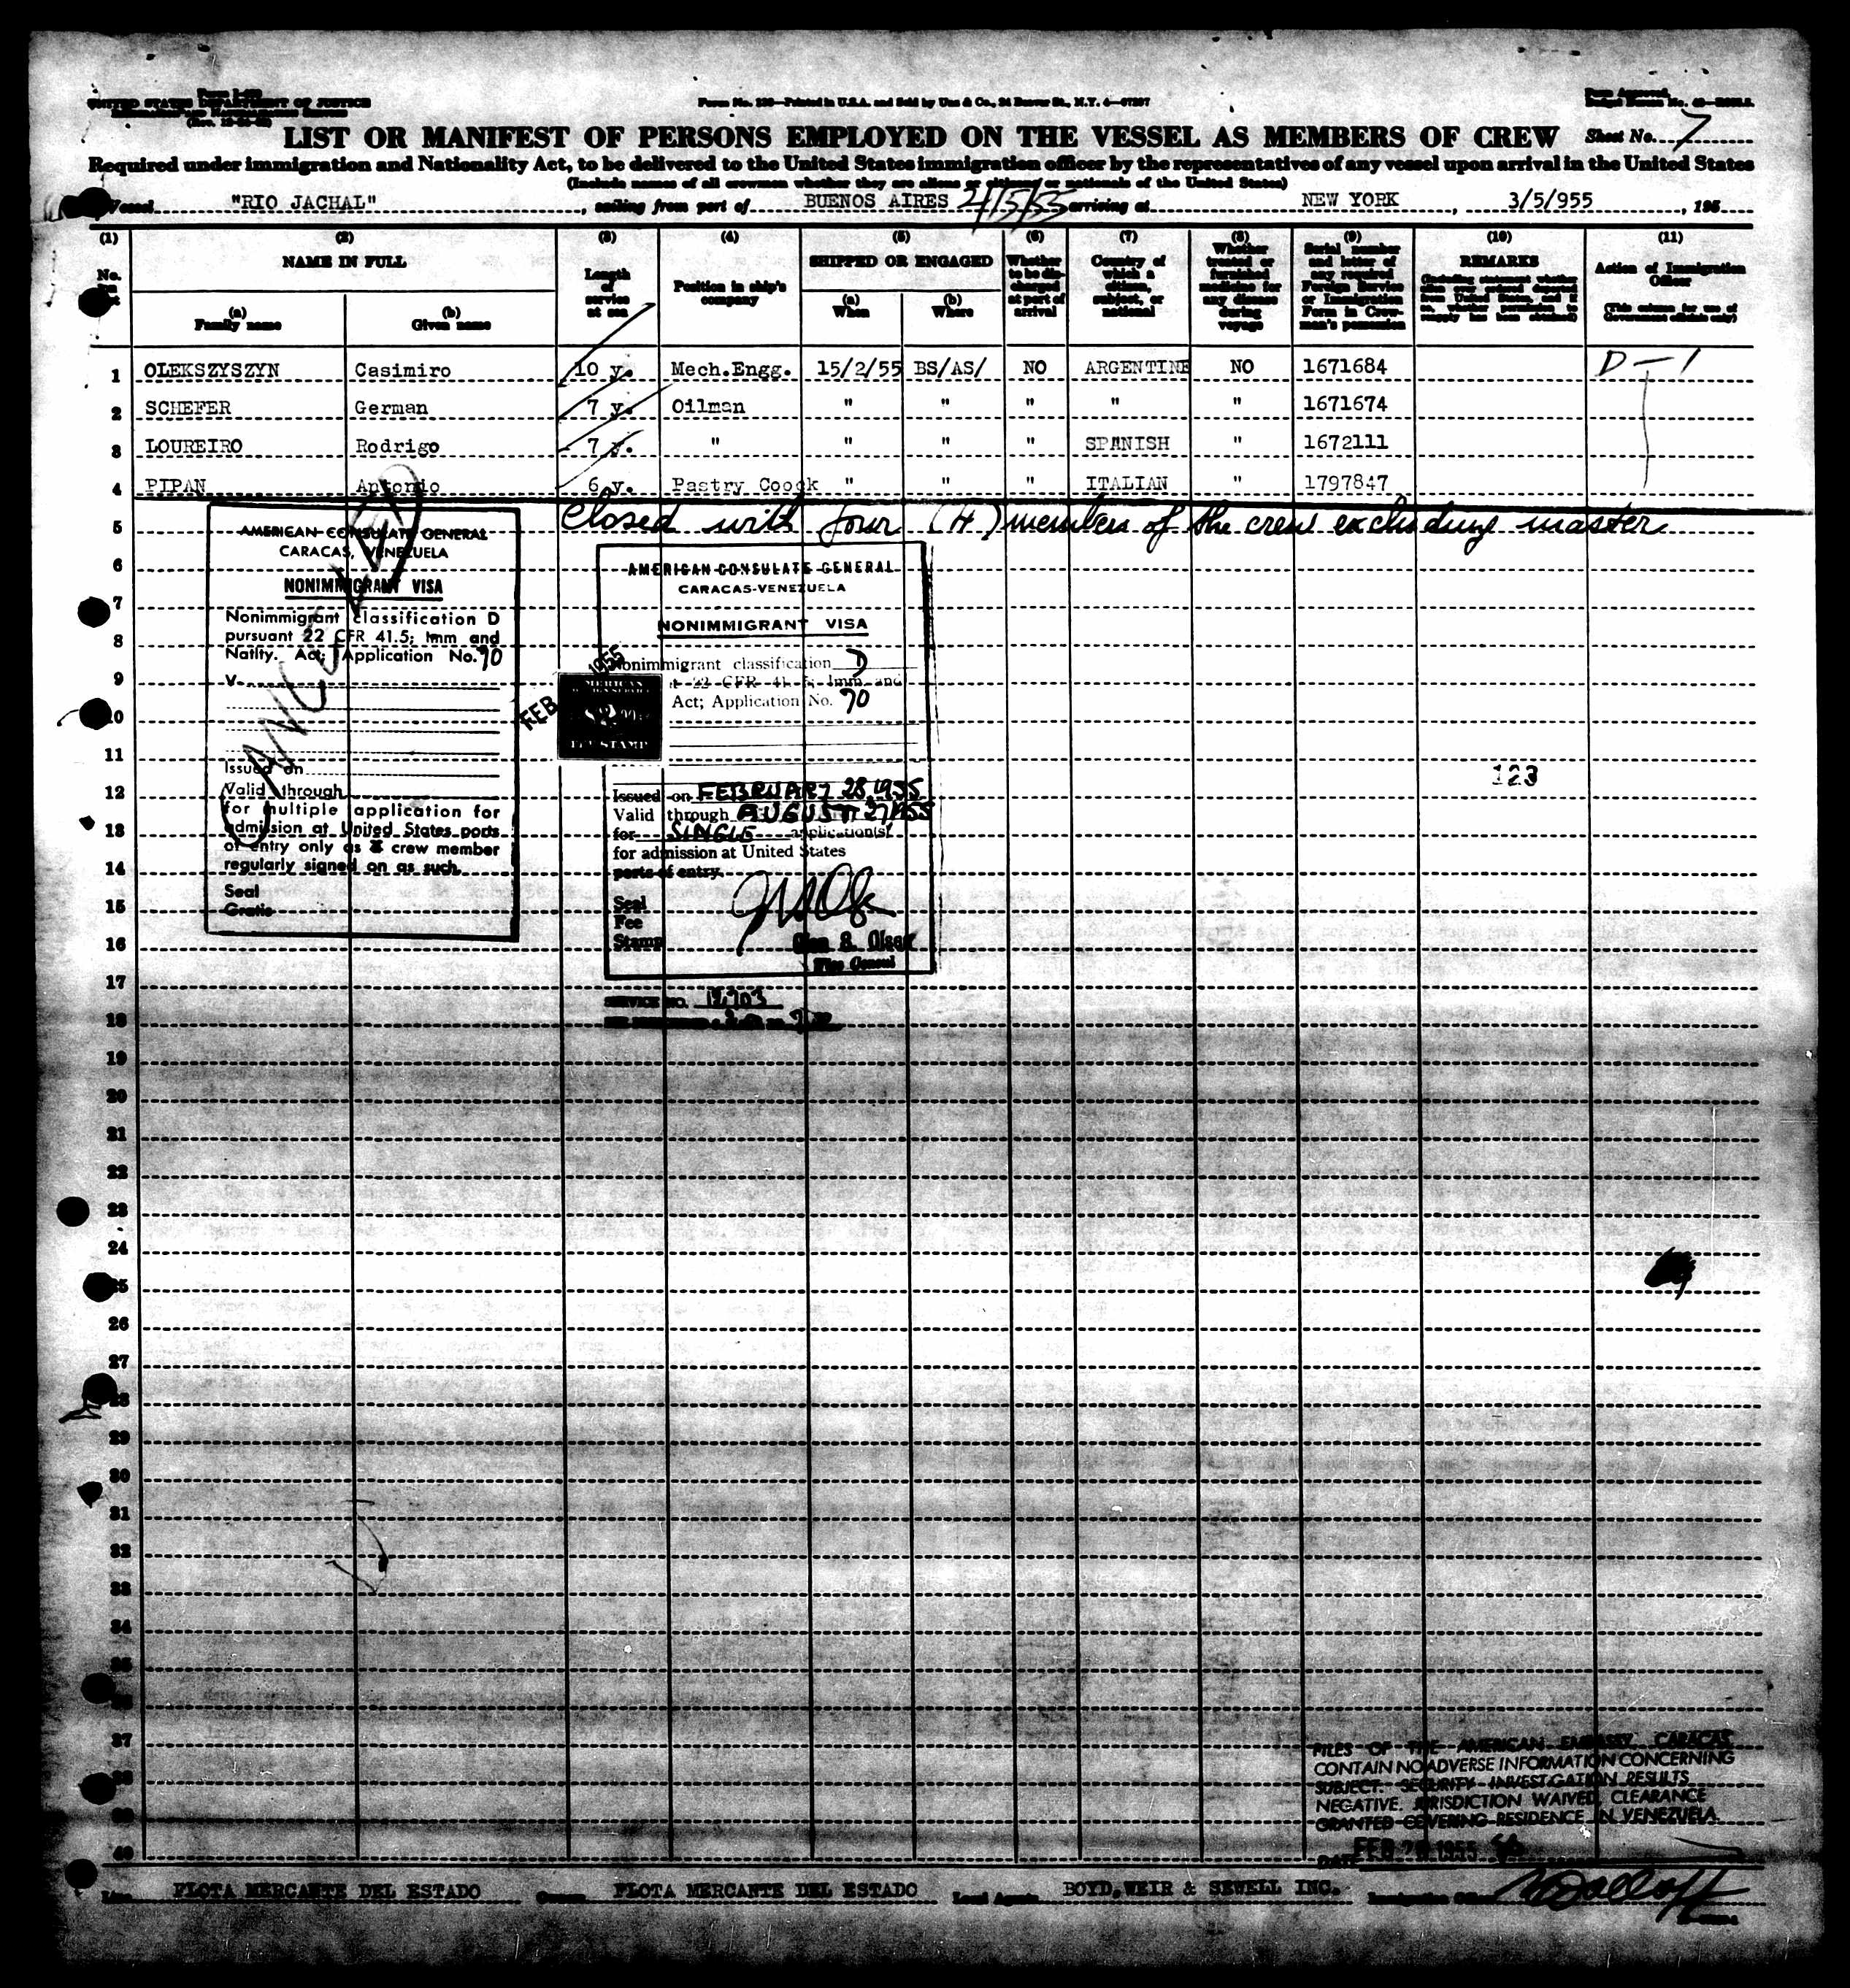 UNITED STATES DEPARTMENT OF JUSTICE
Form No. 120—Printed in U.S.A. and Sold by Unz & Co., 24 Beaver St., N.Y. 4—
Form Approved
LIST OR MANIFEST OF PERSONS EMPLOYED ON THE VESSEL AS MEMBERS OF CREW Sheet No. 7
Required under immigration and Nationality Act, to be delivered to the United States immigration officer by the representatives of any vessel upon arrival in the United States
(Include names of all crewmen whether they are aliens or citizens or nationals of the United States)
Vessel "RIO JACHAL", sailing from port of BUENOS AIRES 2/15/55 arriving at NEW YORK, 3/5/955, 195
(1) (2) (3) (4) (5) (6) (7) (8) (9) (10) (11)
No. NAME IN FULL Length of service at sea Position in ship's company SHIPPED OR ENGAGED Whether to be discharged at port of arrival Country of which a citizen, subject, or national Whether treated or furnished medicine for any disease during voyage Serial number and letter of any required Foreign Service or Immigration Form in Crewman's possession REMARKS (Including statement whether alien ever ordered deported from United States, and if so, whether permission to reapply has been obtained) Action of Immigration Officer (This column for use of Government officials only)
(a) Family name (b) Given name (a) When (b) Where
1 OLEKSZYSZYN Casimiro 10 y. Mech.Engg. 15/2/55 BS/AS/ NO ARGENTINE NO 1671684 D-1
2 SCHEFER German 7 y. Oilman " " " " " 1671674
3 LOUREIRO Rodrigo 7 y. " " " " SPANISH " 1672111
4 PIPAN Antonio 6 y. Pastry Coock " " " ITALIAN " 1797847
Closed with four (4) members of the crew excluding master
CANCELLED
AMERICAN CONSULATE GENERAL
CARACAS, VENEZUELA
NONIMMIGRANT VISA
Nonimmigrant classification D
pursuant 22 CFR 41.5; Imm and
Natlty. Act; Application No. 70
V
Issued on
Valid through
for multiple application for
admission at United States ports
of entry only as a crew member
regularly signed on as such.
Seal
Gratis
AMERICAN CONSULATE GENERAL
CARACAS-VENEZUELA
NONIMMIGRANT VISA
Nonimmigrant classification D
22 CFR 41.5; Imm and
Act; Application No. 70
FEB 1955
AMERICAN
FEE STAMP
Issued on FEBRUARY 28, 1955
Valid through AUGUST 27, 1955
for SINGLE application(s)
for admission at United States
ports of entry.
Seal
Fee
Stamp
Glen S. Olsen
Vice Consul
SERVICE NO. 12,703
123
5
6
7
8
9
10
11
12
13
14
15
16
17
18
19
20
21
22
23
24
25
26
27
28
29
30
31
32
33
34
35
36
37
38
39
40
FILES OF THE AMERICAN EMBASSY CARACAS
CONTAIN NO ADVERSE INFORMATION CONCERNING
SUBJECT. SECURITY INVESTIGATION RESULTS
NEGATIVE. JURISDICTION WAIVED, CLEARANCE
GRANTED COVERING RESIDENCE IN VENEZUELA.
DATE FEB 28 1955
Line FLOTA MERCANTE DEL ESTADO Owners FLOTA MERCANTE DEL ESTADO Local Agents BOYD, WEIR & SEWELL INC. Immigration Officer